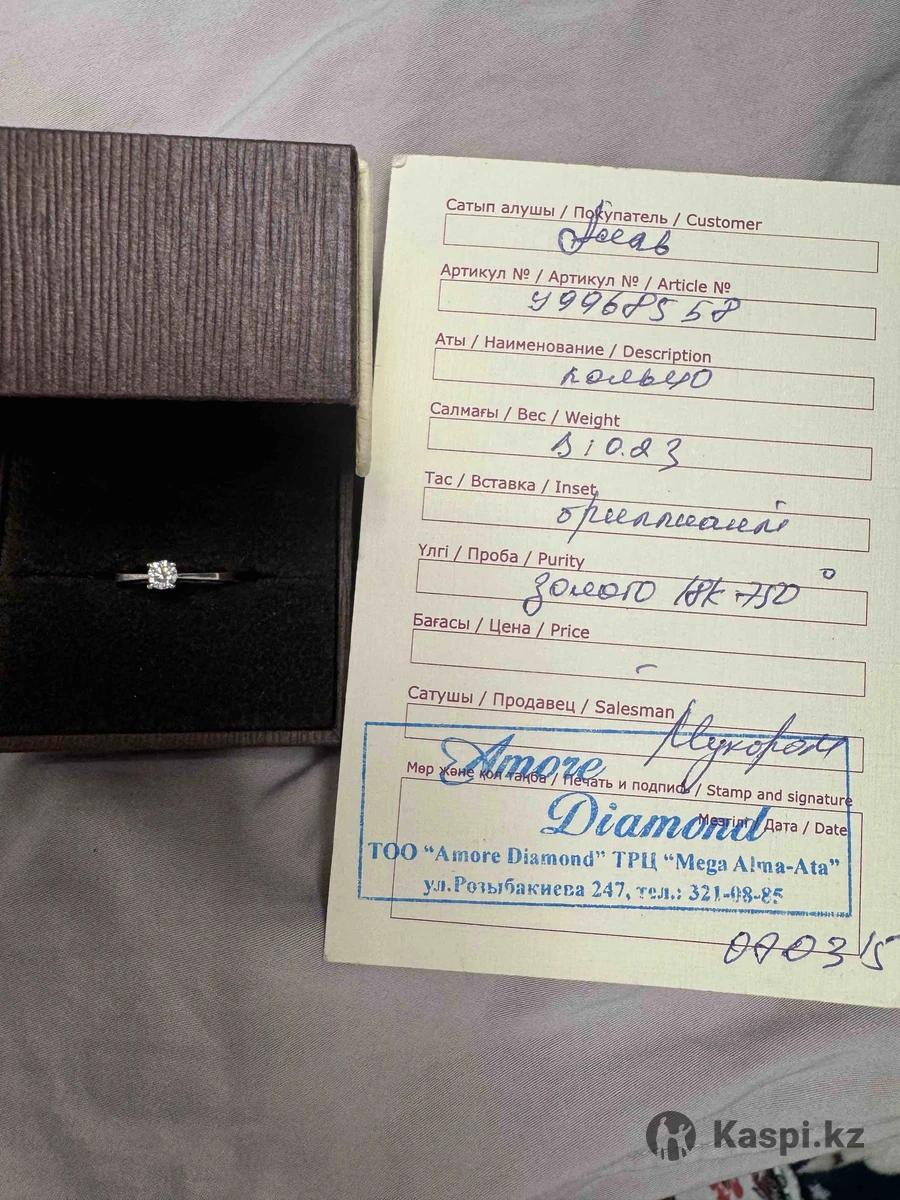 Сатып алушы / Покупатель / Customer
Артикул № / Артикул № / Article №
49968558
Аты / Наименование / Description
кольцо
Салмағы / Вес / Weight
0.23
Тас / Вставка / Inset
бриллиант
Үлгі / Проба / Purity
золото 18К-750°
Бағасы / Цена / Price
-
Сатушы / Продавец / Salesman
Мөр және қол таңба / Печать и подпись / Stamp and signature
Amore
Diamond
Мезгілі / Дата / Date
ТОО "Amore Diamond" ТРЦ "Mega Alma-Ata"
ул.Розыбакиева 247, тел.: 321-08-85
Kaspi.kz